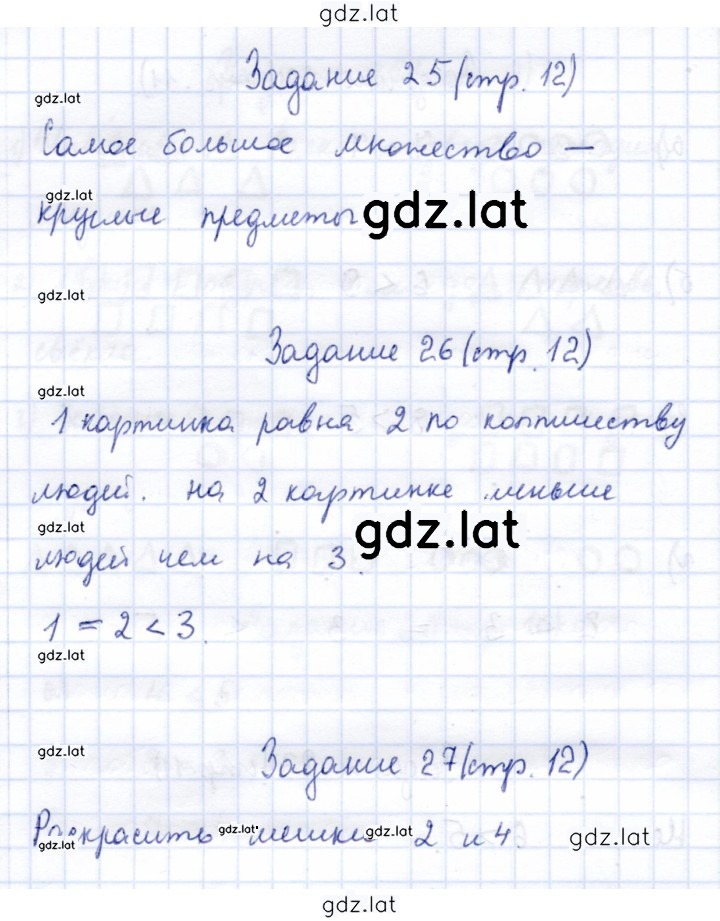 gdz.lat
Задание 25 (стр. 12)
gdz.lat
Самое большое множество —
gdz.lat
круглые предметы gdz.lat
gdz.lat
Задание 26 (стр. 12)
gdz.lat
1 картинка равна 2 по количеству
людей. на 2 картинке меньше
gdz.lat
людей чем на 3. gdz.lat
1 = 2 < 3.
gdz.lat
gdz.lat
Задание 27 (стр. 12)
Раскрасить gdz.lat мешки gdz.lat 2 и 4. gdz.lat
gdz.lat
gdz.lat